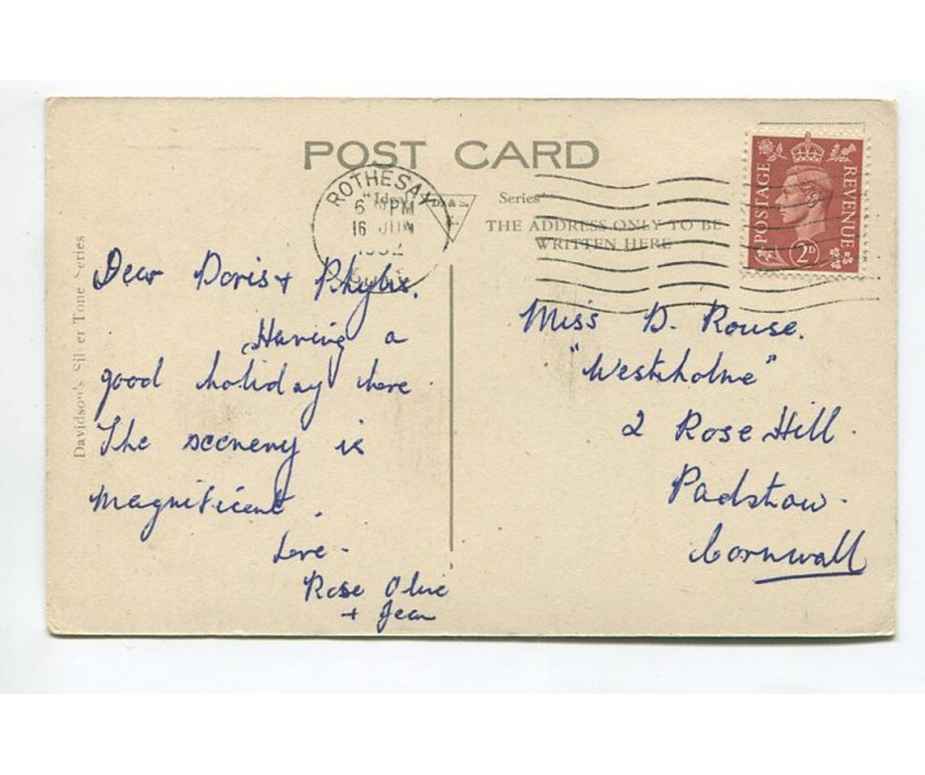 POST CARD
ROTHESAY
6 PM
16 JUN
1952
"Ideal" Series
D & S
THE ADDRESS ONLY TO BE
WRITTEN HERE
POSTAGE
REVENUE
2D
Davidson's Silver Tone Series
Dear Doris + Phyllis.
Having a
good holiday here
The scenery is
magnificent.
Love -
Rose Olive
+ Jean
Miss D. Rouse.
"Westholme"
2 Rose Hill.
Padstow.
Cornwall